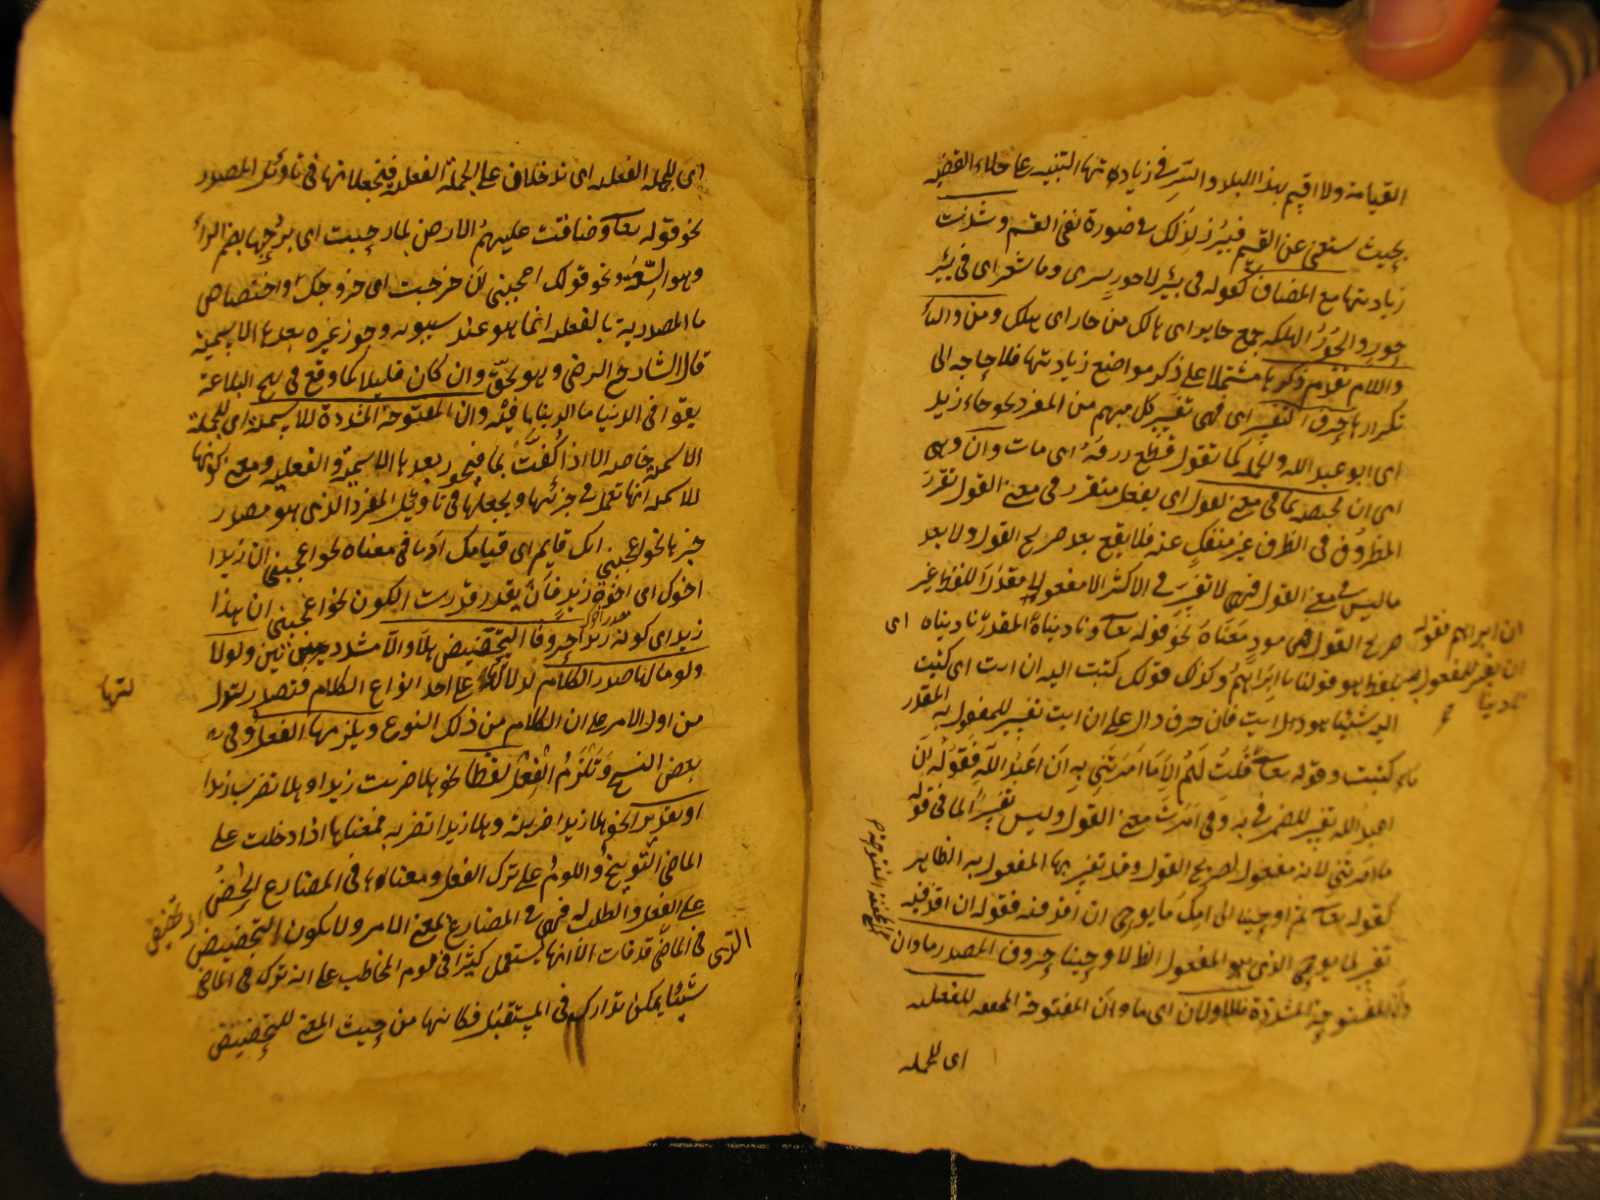 القيامة ولا اقيم بهذا البلد والسر في زيادتها التنبيه على جلاء القضية
بحيث تستغني عن القسم فيبرز لذلك في صورة نفي القسم وشذت
زيادتها مع المضاف كقوله في بئر لا حور سرى وما شعر اى في بئر
حور والحور الهلكة جمع حاير اى هالك من حار اى هلك ومن والباء
واللام تقدم ذكرها مشتملا على ذكر مواضع زيادتها فلا حاجة الى
تكرارها حرفا التفسير اى فهى تفسير كل مبهم من المفرد نحو جاء زيد
اى ابو عبد الله والجملة كما تقول قطع رزقه اى مات وان وهى
اى ان مختصة بما في معنى القول اى بفعل متقرر في معنى القول تقرر
المظروف في الظرف غير منفك عنه فلا يقع بعد صريح القول ولا بعد
ما ليس في معنى القول فهى لا تفسر في الاكثر الا مفعولا مقدرا للفظ غير
صريح القول مود معناه نحو قوله تعالى وناديناه المقدر ناديناه اى
بلفظ هو قولنا يا ابراهيم وكذلك قولك كتبت اليه ان ائت اى كتبت
اليه شيئا هو ائت فان حرف دال على ان ائت تفسير للمفعول به المقدر
كتبت وقوله تعالى ما قلت لهم الا ما امرتني به ان اعبدوا الله فقوله ان
اعبدوا الله تفسير للضمير في به وفي امرت معنى القول وليس تفسيرا لما في قوله
ما امرتني لانه مفعول لصريح القول وقد تفسر بها المفعول به الظاهر
كقوله تعالى اذ اوحينا الى امك ما يوحى ان اقذفيه فقوله ان اقذفيه
تفسير لما يوحى الذى هو المفعول الظاهر لاوحينا حروف المصدر ما وان
وان المفتوحة المشددة فالاولان اى ما وان المفتوحة المخففة للفعلية
اى للجملة
ان ابراهيم فقوله
ناديناه
اى للجملة الفعلية اى تدخلان على الجملة الفعلية فيجعلانها في تأويل المصدر
نحو قوله تعالى وضاقت عليهم الارض بما رحبت اى برحبها بضم الراء
وهو السعة ونحو قولك اعجبني ان خرجت اى خروجك واختصاص
ما المصدرية بالفعلية انما هو عند سيبويه وجوز غيره بعدها الاسمية
قال الشارح الرضى وهو الحق وان كان قليلا كما وقع في نهج البلاغة
بقوا في الدنيا ما الدنيا باقية وان المفتوحة المشددة للاسمية اى للجملة
الاسمية خاصة الا اذا كفت بما فيجوز بعدها الاسمية والفعلية ومعنى كونها
للاسمية انها تعمل في جزئيها ويجعلها في تاويل المفرد الذى هو مصدر
خبرها نحو اعجبني انك قايم اى قيامك او ما في معناه نحو اعجبني ان زيدا
اخوك اى اخوة زيد فان تعذر قدرت الكون نحو اعجبني ان هذا
زيد اى كونه زيدا حروف التحضيض هلا والا مشددتين ولولا
ولوما لها صدر الكلام لدلالتها على احد انواع الكلام فتصدر لتدل
من اول الامر على ان الكلام من ذلك النوع ويلزمها الفعل وفي
بعض النسخ وتلزم الفعل لفظا نحو هلا ضربت زيدا وهلا تضرب زيدا
او تقديرا نحو هلا زيدا ضربته وهلا زيدا تضربه فمعناها اذا دخلت على
الماضي التوبيخ واللوم على ترك الفعل ومعناها في المضارع الحض
على الفعل والطلب له فهى في المضارع بمعنى الامر ولا يكون التحضيض
في الماضي قد فات الا انها تستعمل كثيرا في لوم المخاطب على انه ترك في الماضي
شيئا يمكن تداركه في المستقبل فكانها من حيث المعنى للتحضيض
الذى